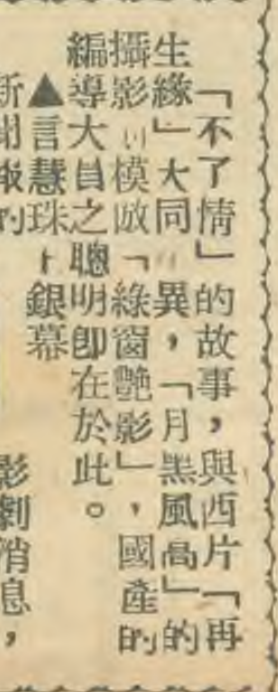 「不了情」的故事，與西片「再
生緣」大同小異，「月黑風高」的
攝影模倣「綠窗艷影」，國產的
編導大員之聰明卽在於此。
▲言慧珠上銀幕
新聞報的
影劇消息，